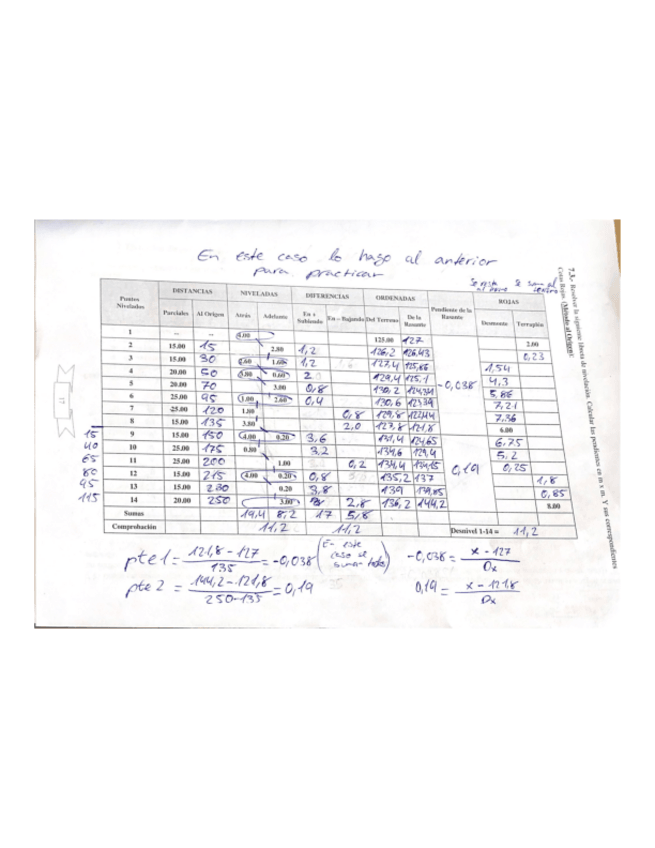 En este caso lo hago al anterior
para practicar
7.3.- Resolver la siguiente libreta de nivelación. Calcular las pendientes en m x m. Y sus correspondientes
Cotas Rojas. (Método al Origen):
Se resta Se suma al
Puntos Nivelados DISTANCIAS NIVELADAS DIFERENCIAS ORDENADAS Pendiente de la Rasante ROJAS
Parciales Al Origen Atrás Adelante En + Subiendo En – Bajando Del Terreno De la Rasante Desmonte Terraplén
1 -- -- 4.00 125.00 127 2.00
2 15.00 15 2.80 1,2 126,2 126,43 0,23
3 15.00 30 1,2 127,4 1,54
4 20.00 50 0.60 2 129,4 4,3
5 20.00 70 3.00 0,8 130,2 5,86
6 25.00 95 2.60 0,4 130,6 7,21
7 25.00 120 1.80 0,8 129,8 7,36
8 15.00 135 3.80 2,0 127,8 121,8 6.00
-0,038
15 9 15.00 150 4.00 0.20 3,6 131,4 124,65 6,75
40 10 25.00 175 0.80 3,2 134,6 129,4 5,2
65 11 25.00 200 1.00 0,2 134,4 134,15 0,25
80 12 15.00 215 4.00 0.20 0,8 135,2 137 1,8
95 13 15.00 230 0.20 3,8 139 139,85 0,85
115 14 20.00 250 3.00 2,8 136,2 144,2 8.00
0,19
Sumas 19,4 8,2 17 5,8
Comprobación 11,2 11,2 Desnivel 1-14 = 11,2
pte1 = 121,8 - 127 / 135 = -0,038 (En este caso se suman todos) -0,038 = x - 127 / Dx
pte 2 = 144,2 - 121,8 / 250-135 = 0,19 0,19 = x - 121,8 / Dx
17